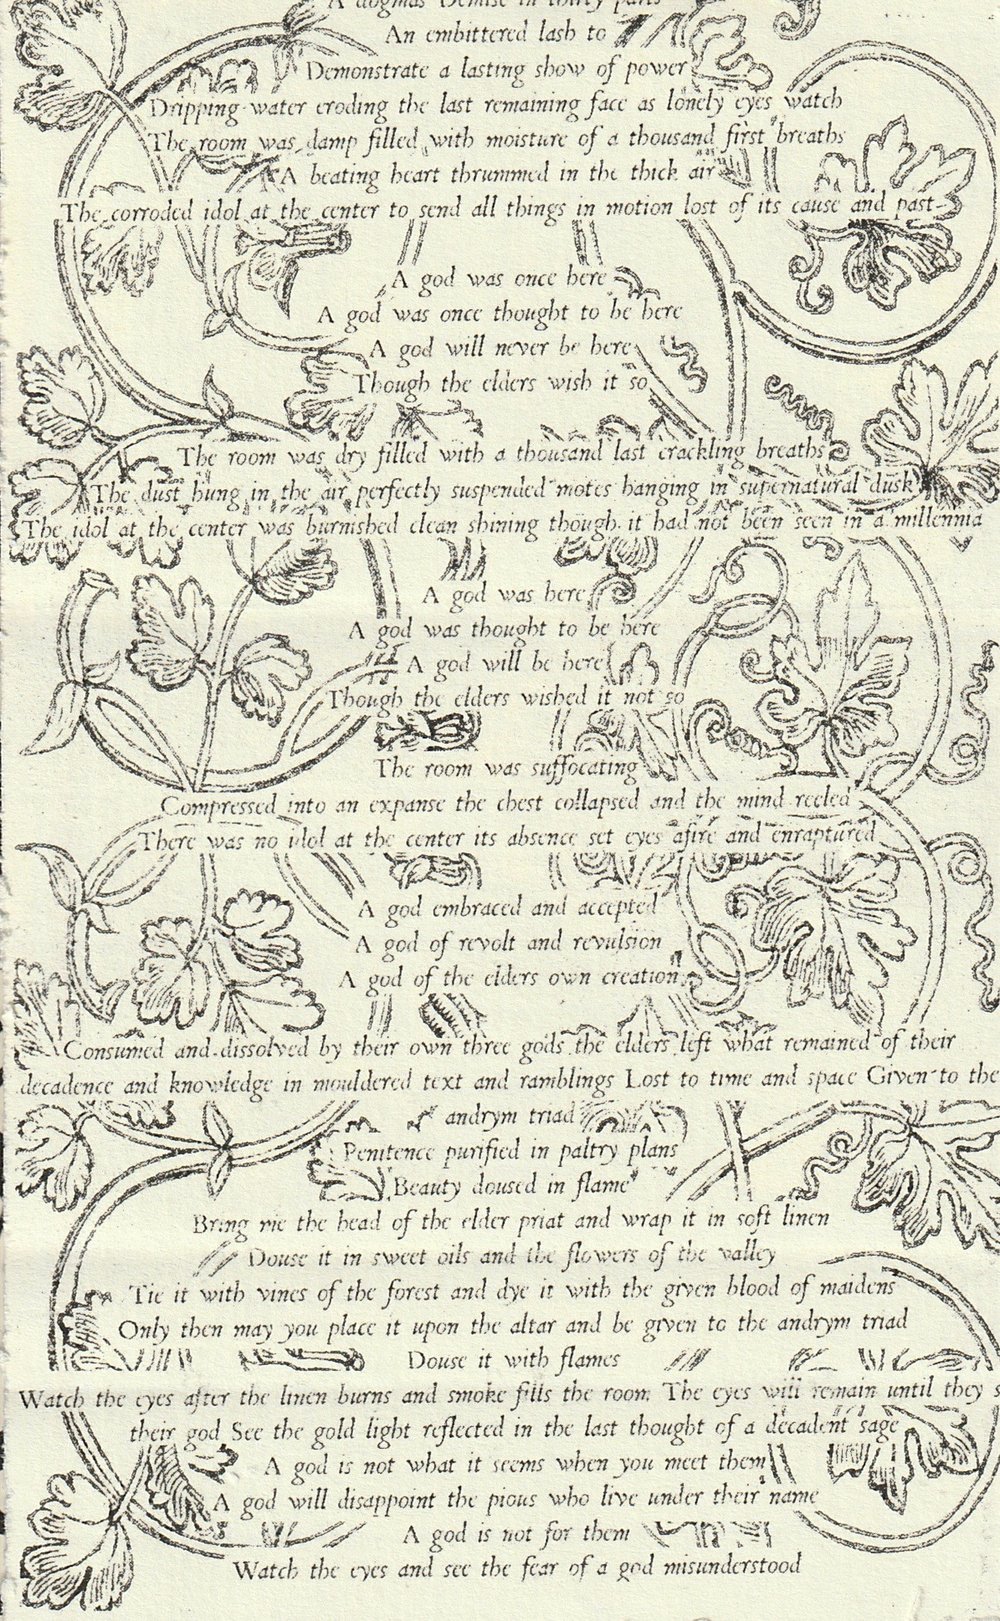 A dogmas Demise in thirty parts
An embittered lash to
Demonstrate a lasting show of power
Dripping water eroding the last remaining face as lonely eyes watch
The room was damp filled with moisture of a thousand first breaths
A beating heart thrummed in the thick air
The corroded idol at the center to send all things in motion lost of its cause and past
A god was once here
A god was once thought to be here
A god will never be here
Though the elders wish it so
The room was dry filled with a thousand last crackling breaths
The dust hung in the air perfectly suspended motes hanging in supernatural dusk
The idol at the center was burnished clean shining though it had not been seen in a millennia
A god was here
A god was thought to be here
A god will be here
Though the elders wished it not so
The room was suffocating
Compressed into an expanse the chest collapsed and the mind reeled
There was no idol at the center its absence set eyes afire and enraptured
A god embraced and accepted
A god of revolt and revulsion
A god of the elders own creation
Consumed and dissolved by their own three gods the elders left what remained of their
decadence and knowledge in mouldered text and ramblings Lost to time and space Given to the
andrym triad
Penitence purified in paltry plans
Beauty doused in flame
Bring me the head of the elder priat and wrap it in soft linen
Douse it in sweet oils and the flowers of the valley
Tie it with vines of the forest and dye it with the given blood of maidens
Only then may you place it upon the altar and be given to the andrym triad
Douse it with flames
Watch the eyes after the linen burns and smoke fills the room The eyes will remain until they
their god See the gold light reflected in the last thought of a decadent sage
A god is not what it seems when you meet them
A god will disappoint the pious who live under their name
A god is not for them
Watch the eyes and see the fear of a god misunderstood